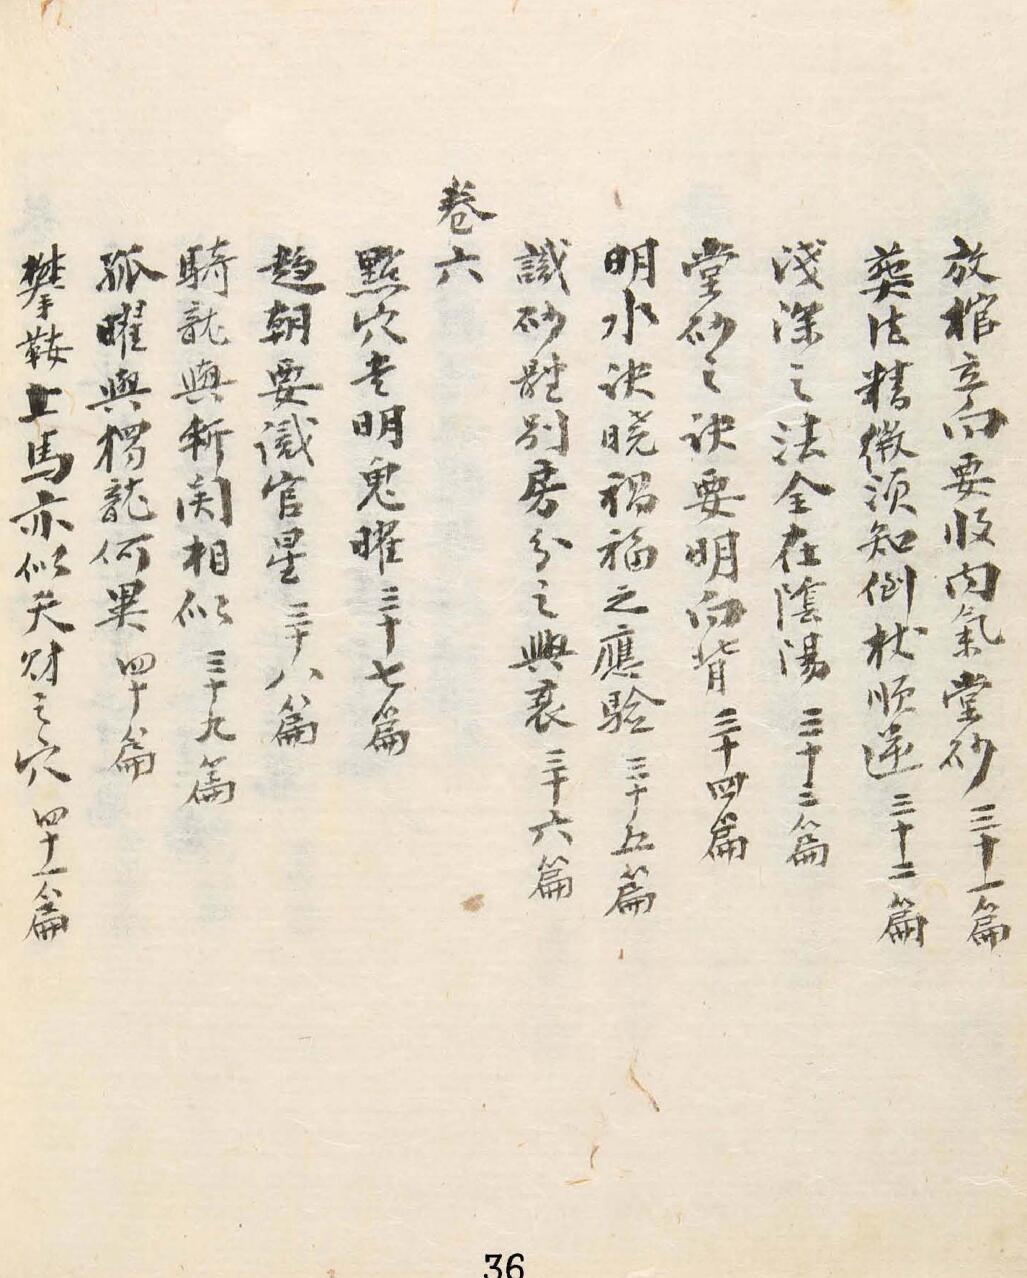 放棺立向要收內氣堂砂 三十一篇
葬法精微須知倒杖順逆 三十二篇
淺深之法全在陰陽 三十三篇
堂砂之訣要明向背 三十四篇
明水訣曉禍福之應驗 三十五篇
識砂體別房分之興衰 三十六篇
卷六
點穴者明鬼曜 三十七篇
趨朝要識官星 三十八篇
騎龍與斬関相似 三十九篇
孤曜與獨龍何異 四十篇
攀鞍上馬亦似天財之穴 四十一篇
36